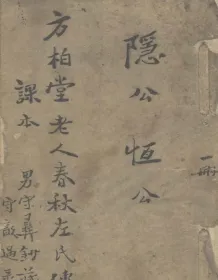 一冊
隱公恆公
方柏堂老人春秋左氏傳
課本
男守彝鈔讀
守敦過